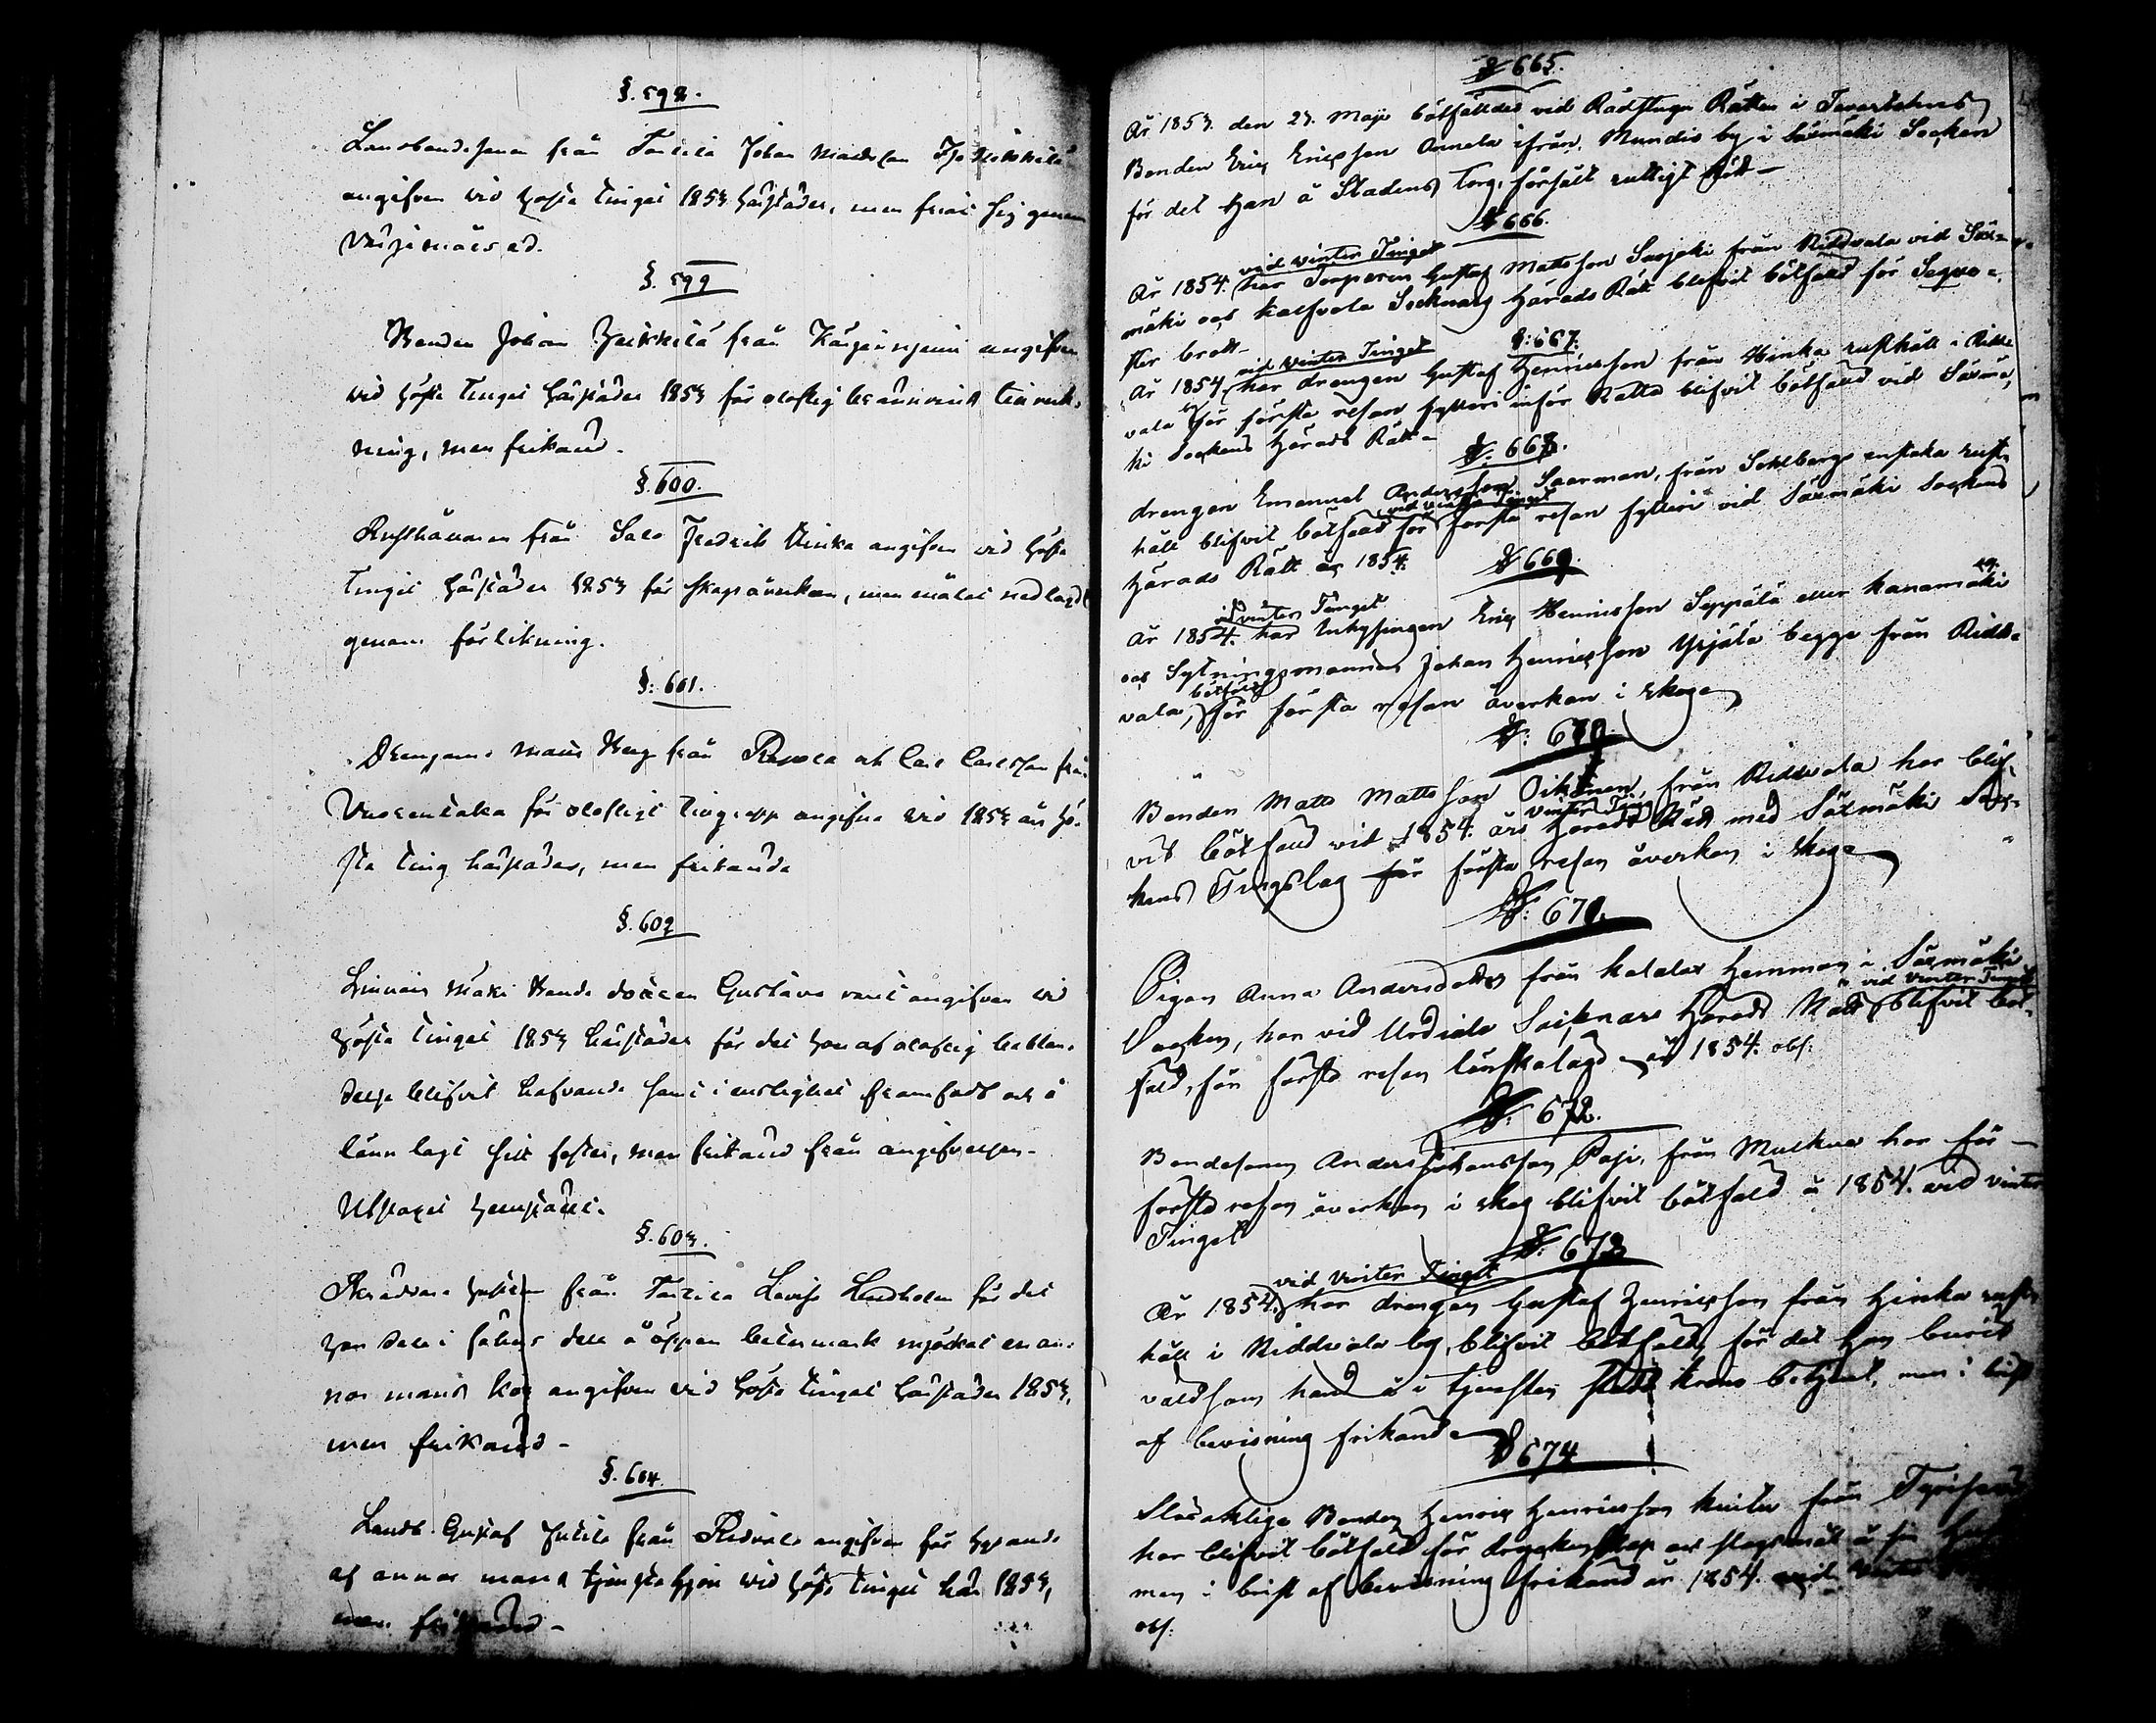 §. 598.
Landbondesonen från Tarttila Johan Mattsson
angifven vid Höste Tinget 1853 härstädes, men friat sig genom
Värjemåls ed.
§. 599
Bonden Johan Heikkilä från Kärjenniemi angifven
vid Höste Tinget härstädes 1853 för olaflig brännvins tillverk-
ning, men frikänd.
§. 600.
Rusthållaren från Salo Fredrik angifven vid Höste
Tinget härstädes 1853 för skogsåverkan, men målet nedlagdt
genom förlikning.
§: 601.
Drengarne Matts Berg från och Carl Carlsson från
för olofligt angifne vid 1853 års Hö-
ste Ting härstädes, men frikände
§. 602
Mäki Bonde dottren Gustava angifven vid
Höste Tinget 1853 härstädes för det hon af olaflig beblan-
delse blifvit hafvande samt i enslighet framfödt och å
lönn lagt sitt foster, men frikänd från angifvelsen.
§. 603.
Skräddare hustrun från Tarttila Lovisa Lindholm för det
hon dels i fähus dels å öppen betesmark mjölkat en an-
nor mans ko, angifven vid Höste Tinget härstädes 1853,
men frikänd -
§. 604.
Landb. Gustaf från Ridvala angifven för hysande
af annor mans tjenstehjon vid Höste Tinget här 1853,
men frikänd -
§ 665.
År 1853. den 23. Maji bötfälldes vid Rådstugu Rätten i Tavastehus
Bonden Eric Ericsson Annala ifrån Mundis by i Säxmäki Socken
för det han å Stadens Torg, försålt ruttigt kött -
§ 666.
År 1854. vid winter Tinget har Torparen Gustaf Mattsson från Riddvala vid Säx-
mäki och Kalfvola Socknars Härads Rätt blifvit bötfäld för Seqve-
ster brott -
§: 667.
År 1854 vid winter Tinget har drengen Gustaf Henricsson från Hinka rusthåll i Ridd-
vala by för första resan fylleri inför Rätta blifvit bötfäld vid Säxmä-
ki Sockens Härads Rätt -
§. 668.
drengen Emanuel Andersson Saarman, från Sohlbergs enstaka rust-
håll blifvit bötfäld vid vinter Tinget för första resan fylleri vid Säxmäki Sockens
Härads Rätt år 1854.
§ 669.
År 1854. vid vinter Tinget har Inhysingen Eric Henricsson Seppälä eller Kanamäki
och Sytningsmannen Johan Henricsson Yrjälä begge från Ridd-
vala, bötfälde för första resan åverkan i skog
§: 670.
Bonden Matts Mattsson Oikonen, från Riddvala har blif-
vit bötfäld vid 1854. års vinter Ting Härads Rätt med Säxmäki Soc-
kens Tingslag för första resan åverkan i skog
§: 671.
Pigan Anna Andersdotter från Kalalax Hemman i Säxmäki
Socken, har vid Urdiala Socknars Härads Rätt vid vinter Tinget blifvit böt-
fäld, för första resan lönskaläge år 1854. obs:
§: 672.
Bondesonen Anders Johansson Papi, från Mutkua har för
första resan åverkan i skog blifvit bötfäld år 1854. vid vinter
Tinget
§: 673
År 1854. vid vinter Tinget har drengen Gustaf Henricsson från Hinka rust-
håll i Riddvala by, blifvit bötfäld, för det han burit
våldsam hand å i tjensten stadt krono betjent, men i brist
af bevisning frikänd
§ 674
Bonden Henric Henricsson från
har blifvit bötfäld för dryckenskap och slagsmål å sin
men i brist af bevisning frikänd år 1854. vid vinter
obs: